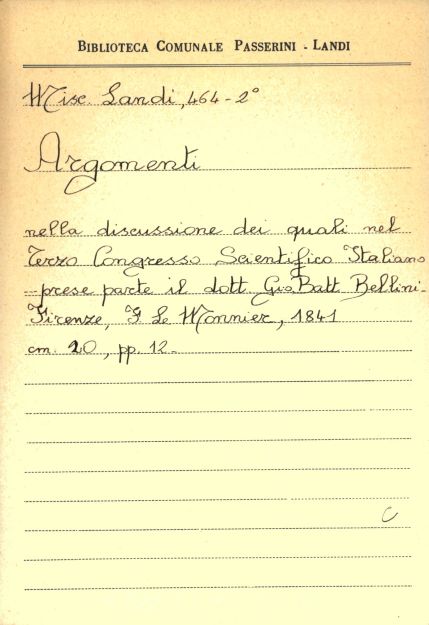 BIBLIOTECA COMUNALE PASSERINI - LANDI
Misc. Landi, 464 - 2°
Argomenti
nella discussione dei quali nel
Terzo Congresso Scientifico Italiano
prese parte il dott Gio. Batt Bellini-
Firenze, F. Le Monnier, 1841
cm. 20, pp. 12-
C